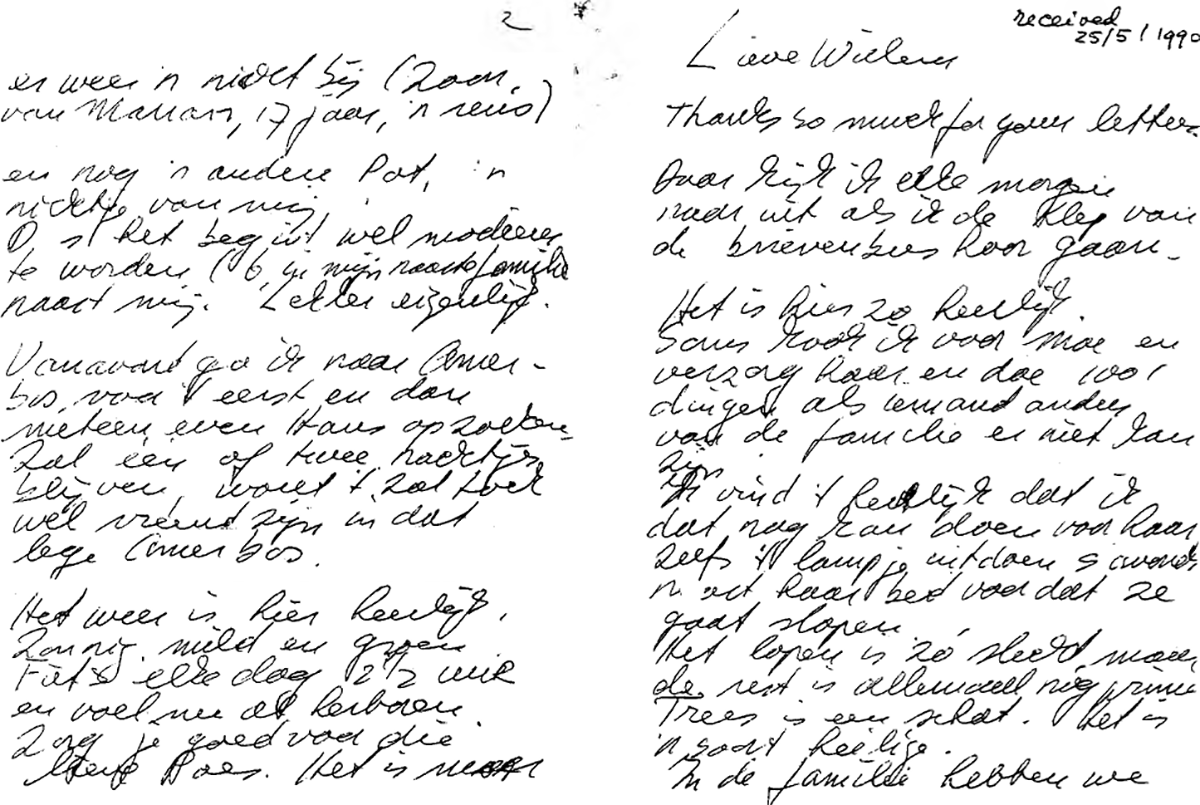 received
25/5/1990
Lieve Willem
Thanks so much for your letters.
Daar kijk ik elke morgen
naar uit als ik de klep van
de brievenbus hoor gaan.
Het is hier zo heerlijk.
Soms kook ik voor moe en
verzorg haar en doe 1001
dingen als iemand anders
van de familie er niet kan
zijn
Ik vind 't heerlijk dat ik
dat nog kan doen voor haar
zelfs 't lampje uitdoen s'avonds
haar bed voordat ze
gaat slapen.
Het lopen is zó slecht, maar
de rest is allemaal nog prima
Trees is een schat. Het is
'n soort heilige.
In de familie hebben we
2
er weer 'n nicht bij (zoon
van Marian, 17 jaar, 'n reus)
en nog 'n andere Pot, 'n
nichtje van mij.
O, 't begint wel modieus
te worden (6 in mijn naaste familie
naast mij. Lekker eigenlijk.
Vanavond ga ik naar Amer-
bos, voor 't eerst en dan
meteen even Hans opzoeken.
Zal één of twee nachtjes
blijven, want 't zal toch
wel vreemd zijn in dat
lege Amerbos.
Het weer is hier heerlijk,
Zonnig, mild en groen
Fiets elke dag 2 1/2 uur
en voel me als herboren.
Zorg je goed voor die
lieve Poes. Het is maar